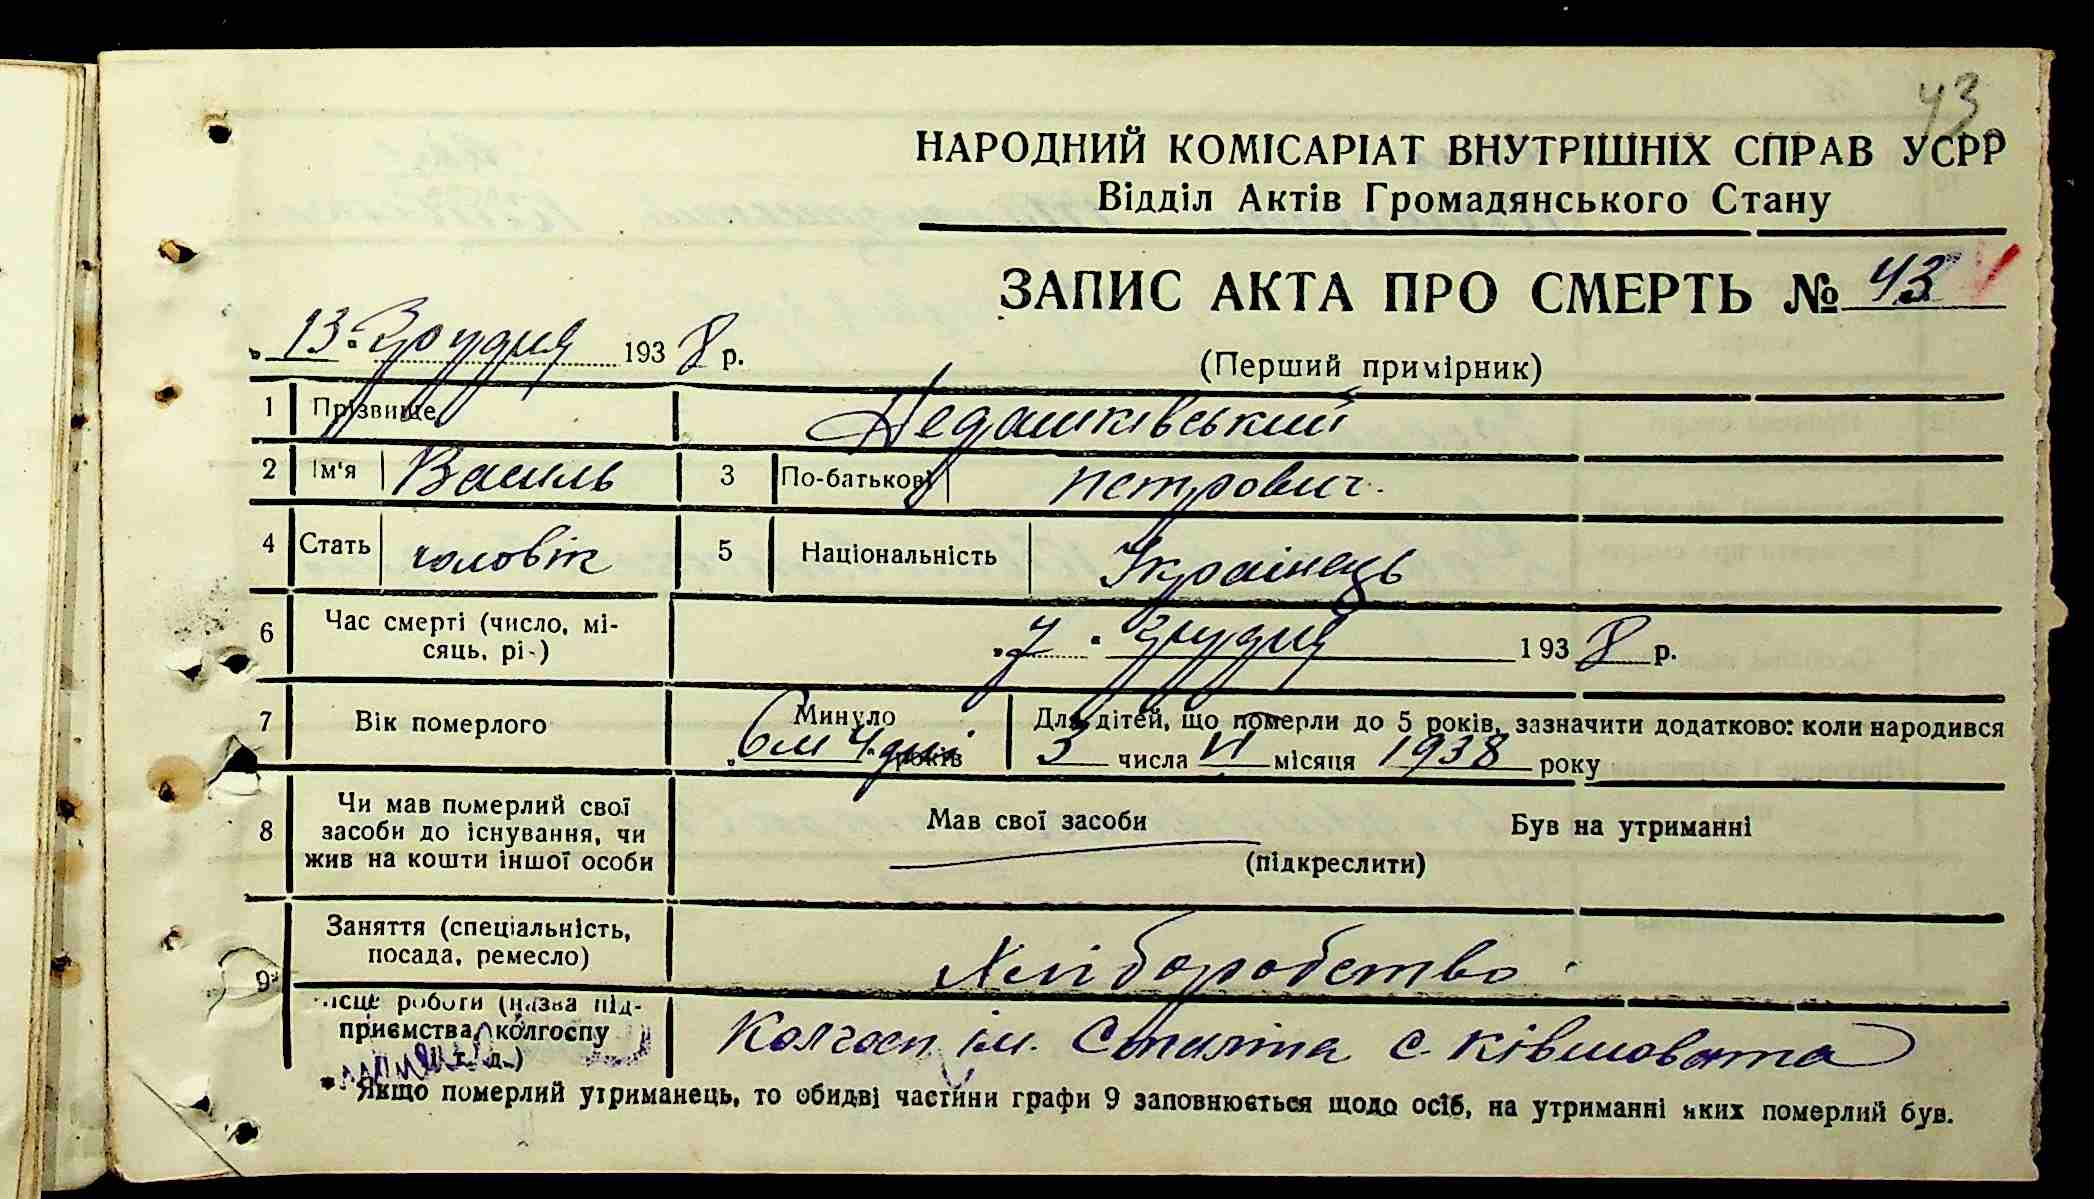 43
НАРОДНИЙ КОМІСАРІАТ ВНУТРІШНІХ СПРАВ УСРР
Відділ Актів Громадянського Стану
ЗАПИС АКТА ПРО СМЕРТЬ № 43
„13" Грудня 1938 р.
(Перший примірник)
1 Прізвище Недашківський
2 Ім'я Василь 3 По-батькові Петрович
4 Стать чоловік 5 Національність Українець
6 Час смерті (число, мі-
сяць, рі-) „7" грудня 1938 р.
7 Вік померлого Минуло 6 м 4 дні років Для дітей, що померли до 5 років, зазначити додатково: коли народився
3 числа VI місяця 1938 року
8 Чи мав померлий свої
засоби до існування, чи
жив на кошти іншої особи
Мав свої засоби Був на утриманні
(підкреслити)
9* Заняття (спеціальність,
посада, ремесло) Хліборобство
місце роботи (назва під-
приємства, колгоспу
і т. д.) Колгосп ім. Сталіна с. Ківшовата
* Якщо померлий утриманець, то обидві частини графи 9 заповнюється щодо осіб, на утриманні яких померлий був.